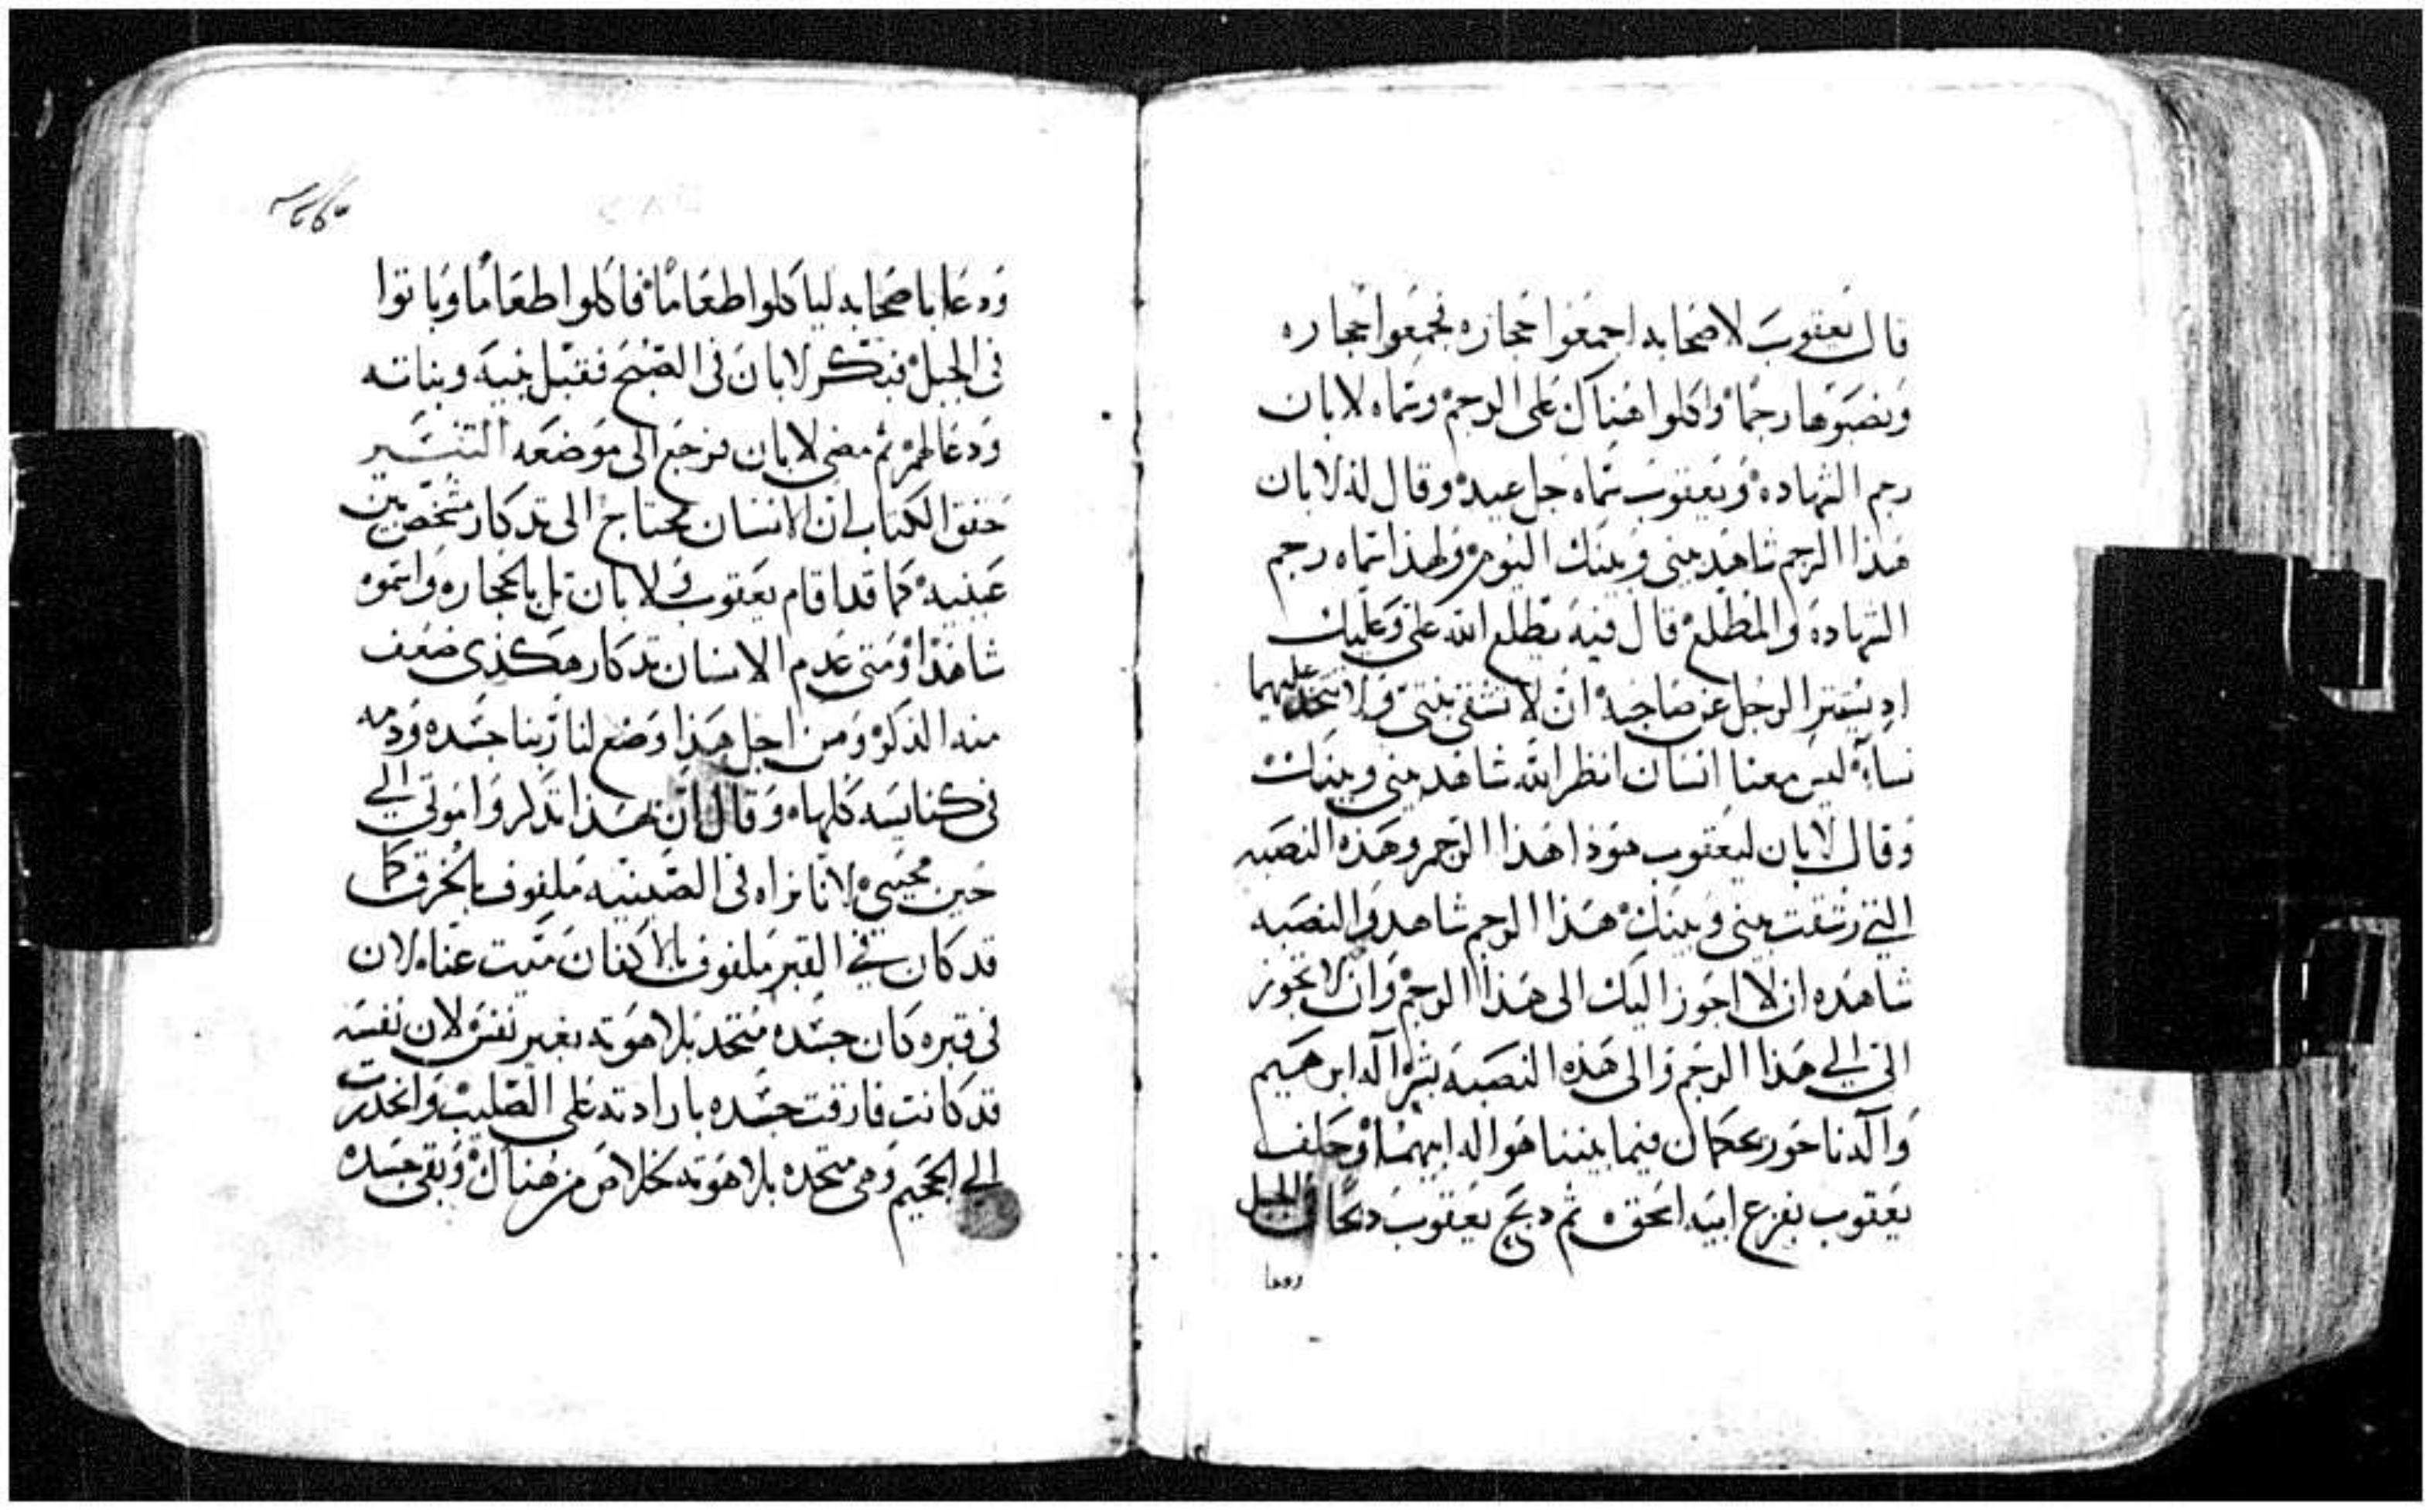 قال يعقوب لاصحابه اجمعوا حجاره فجمعوا حجاره
ونصبوها رجمًا واكلوا هناك على الرجم وسماه لابان
رجم الشهاده ويعقوب سماه جل عيد وقال له لابان
هذا الرجم شاهد بيني وبينك اليوم ولهذا سماه رجم
الشهاده والمطلع قال فيه يطلع الله علي وعليك
اد يستتر الرجل عن صاحبه ان لا تشقي بنتي ولا تتخد عليهما
نساء ليس معنا انسان انظر الله شاهد بيني وبينك
وقال لابان ليعقوب هوذا هذا الرجم وهذه النصبه
التي رشقت بيني وبينك هذا الرجم شاهد والنصبه
شاهده ان لا اجوز اليك الى هذا الرجم وان لا تجوز
الي الى هذا الرجم والى هذه النصبه بشر اله ابرهيم
واله ناحور يحكمان فيما بيننا هو اله ابيهما وحلف
يعقوب بفزع ابيه اسحق ثم دبح يعقوب دبحًا في الجبل
ودعا
ودعا باصحابه لياكلوا طعامًا فاكلوا طعامًا وباتوا
في الجبل فبكر لابان في الصبح فقبل بنيه وبناته
ودعا لهم ثم مضى لابان فرجع الى موضعه التفسير
حقق الكتاب ان الانسان يحتاج الى تدكار مشخص بين
عينيه كما قد اقام يعقوب ولابان تل بالحجاره واسموه
شاهدًا ومتى عدم الانسان تدكار هكذى ضعف
منه الذكر ومن اجل هذا وضع لنا ربنا جسده ودمه
في كنايسه كلها وقال ان بهذا تذكروا موتي الى
حين مجيي لاننا نراه في الصينيه ملفوف بالخرق كما
قد كان في القبر ملفوف بالاكفان ميت عنا لان
في قبره كان جسده متحد بلاهوته بغير نفس لان نفسه
قد كانت فارقت جسده بارادته على الصليب وانحدرت
الى الجحيم وهى متحده بلاهوته بخلاص من هناك وبقى جسده